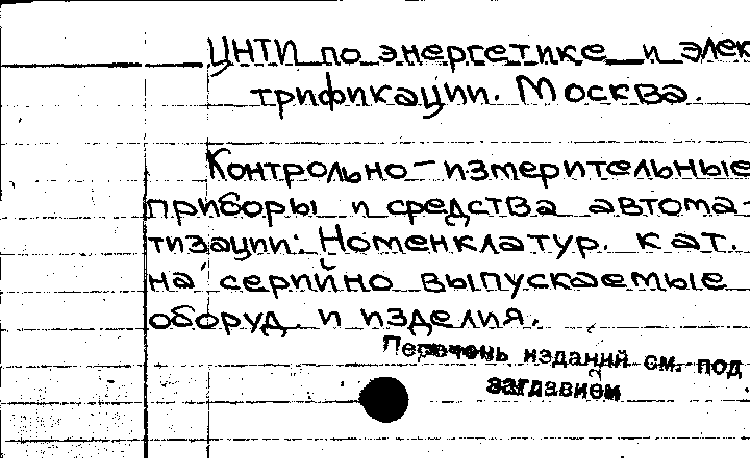 ЦНТИ по энергетике и элек
трификации. Москва.
Контрольно-измерительные
приборы и средства автома-
тизации: Номенклатур. кат.
на серийно выпускаемые
оборуд. и изделия.
Перечень изданий см. под
заглавием